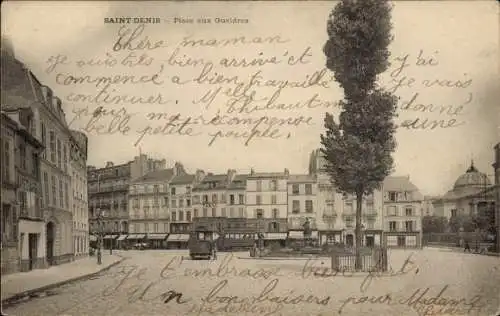 SAINT-DENIS - Place aux Gueldres
Chère maman
je suis bien arrivé et j'ai
commencé a bien travaille je vais
continuer. Melle Thibaut m'a donné une
belle petite poupée
pour ma récompense
bien fort.
un bon baisers pour Madame
Madeleine